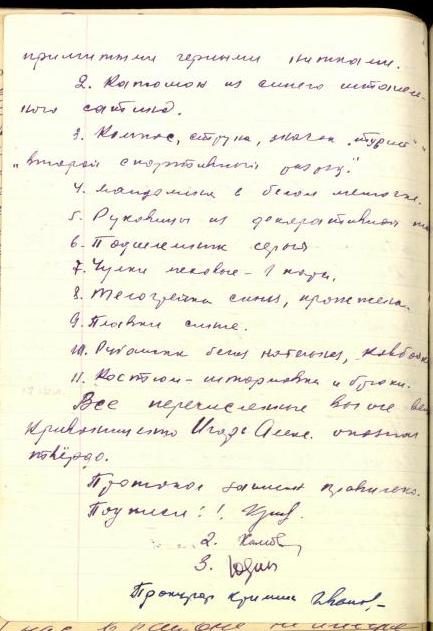 пришитыми черными нитками.
2. Капюшон из синего штапель-
ного сатина.
3. Компас, струна, значок "турист"
"второй спортивный разряд".
4. мандолина в белом мешочке.
5. Рукавицы из декоративной
6. Подшлемник серый
7. Чулки меховые – 1 пара.
8. Телогрейка синяя, прожжена.
9. Плавки синие.
10. Рубашка белая нательная, ковбойка
11. Костюм – штормовка и брюки.
Все перечисленные выше вещи
Кривонищенко Игоря Алекс. опознал
твёрдо.
Протокол записан правильно.
Подписи: 1. Крив.
2.
3. Юдин
Прокурор кримин Иванов